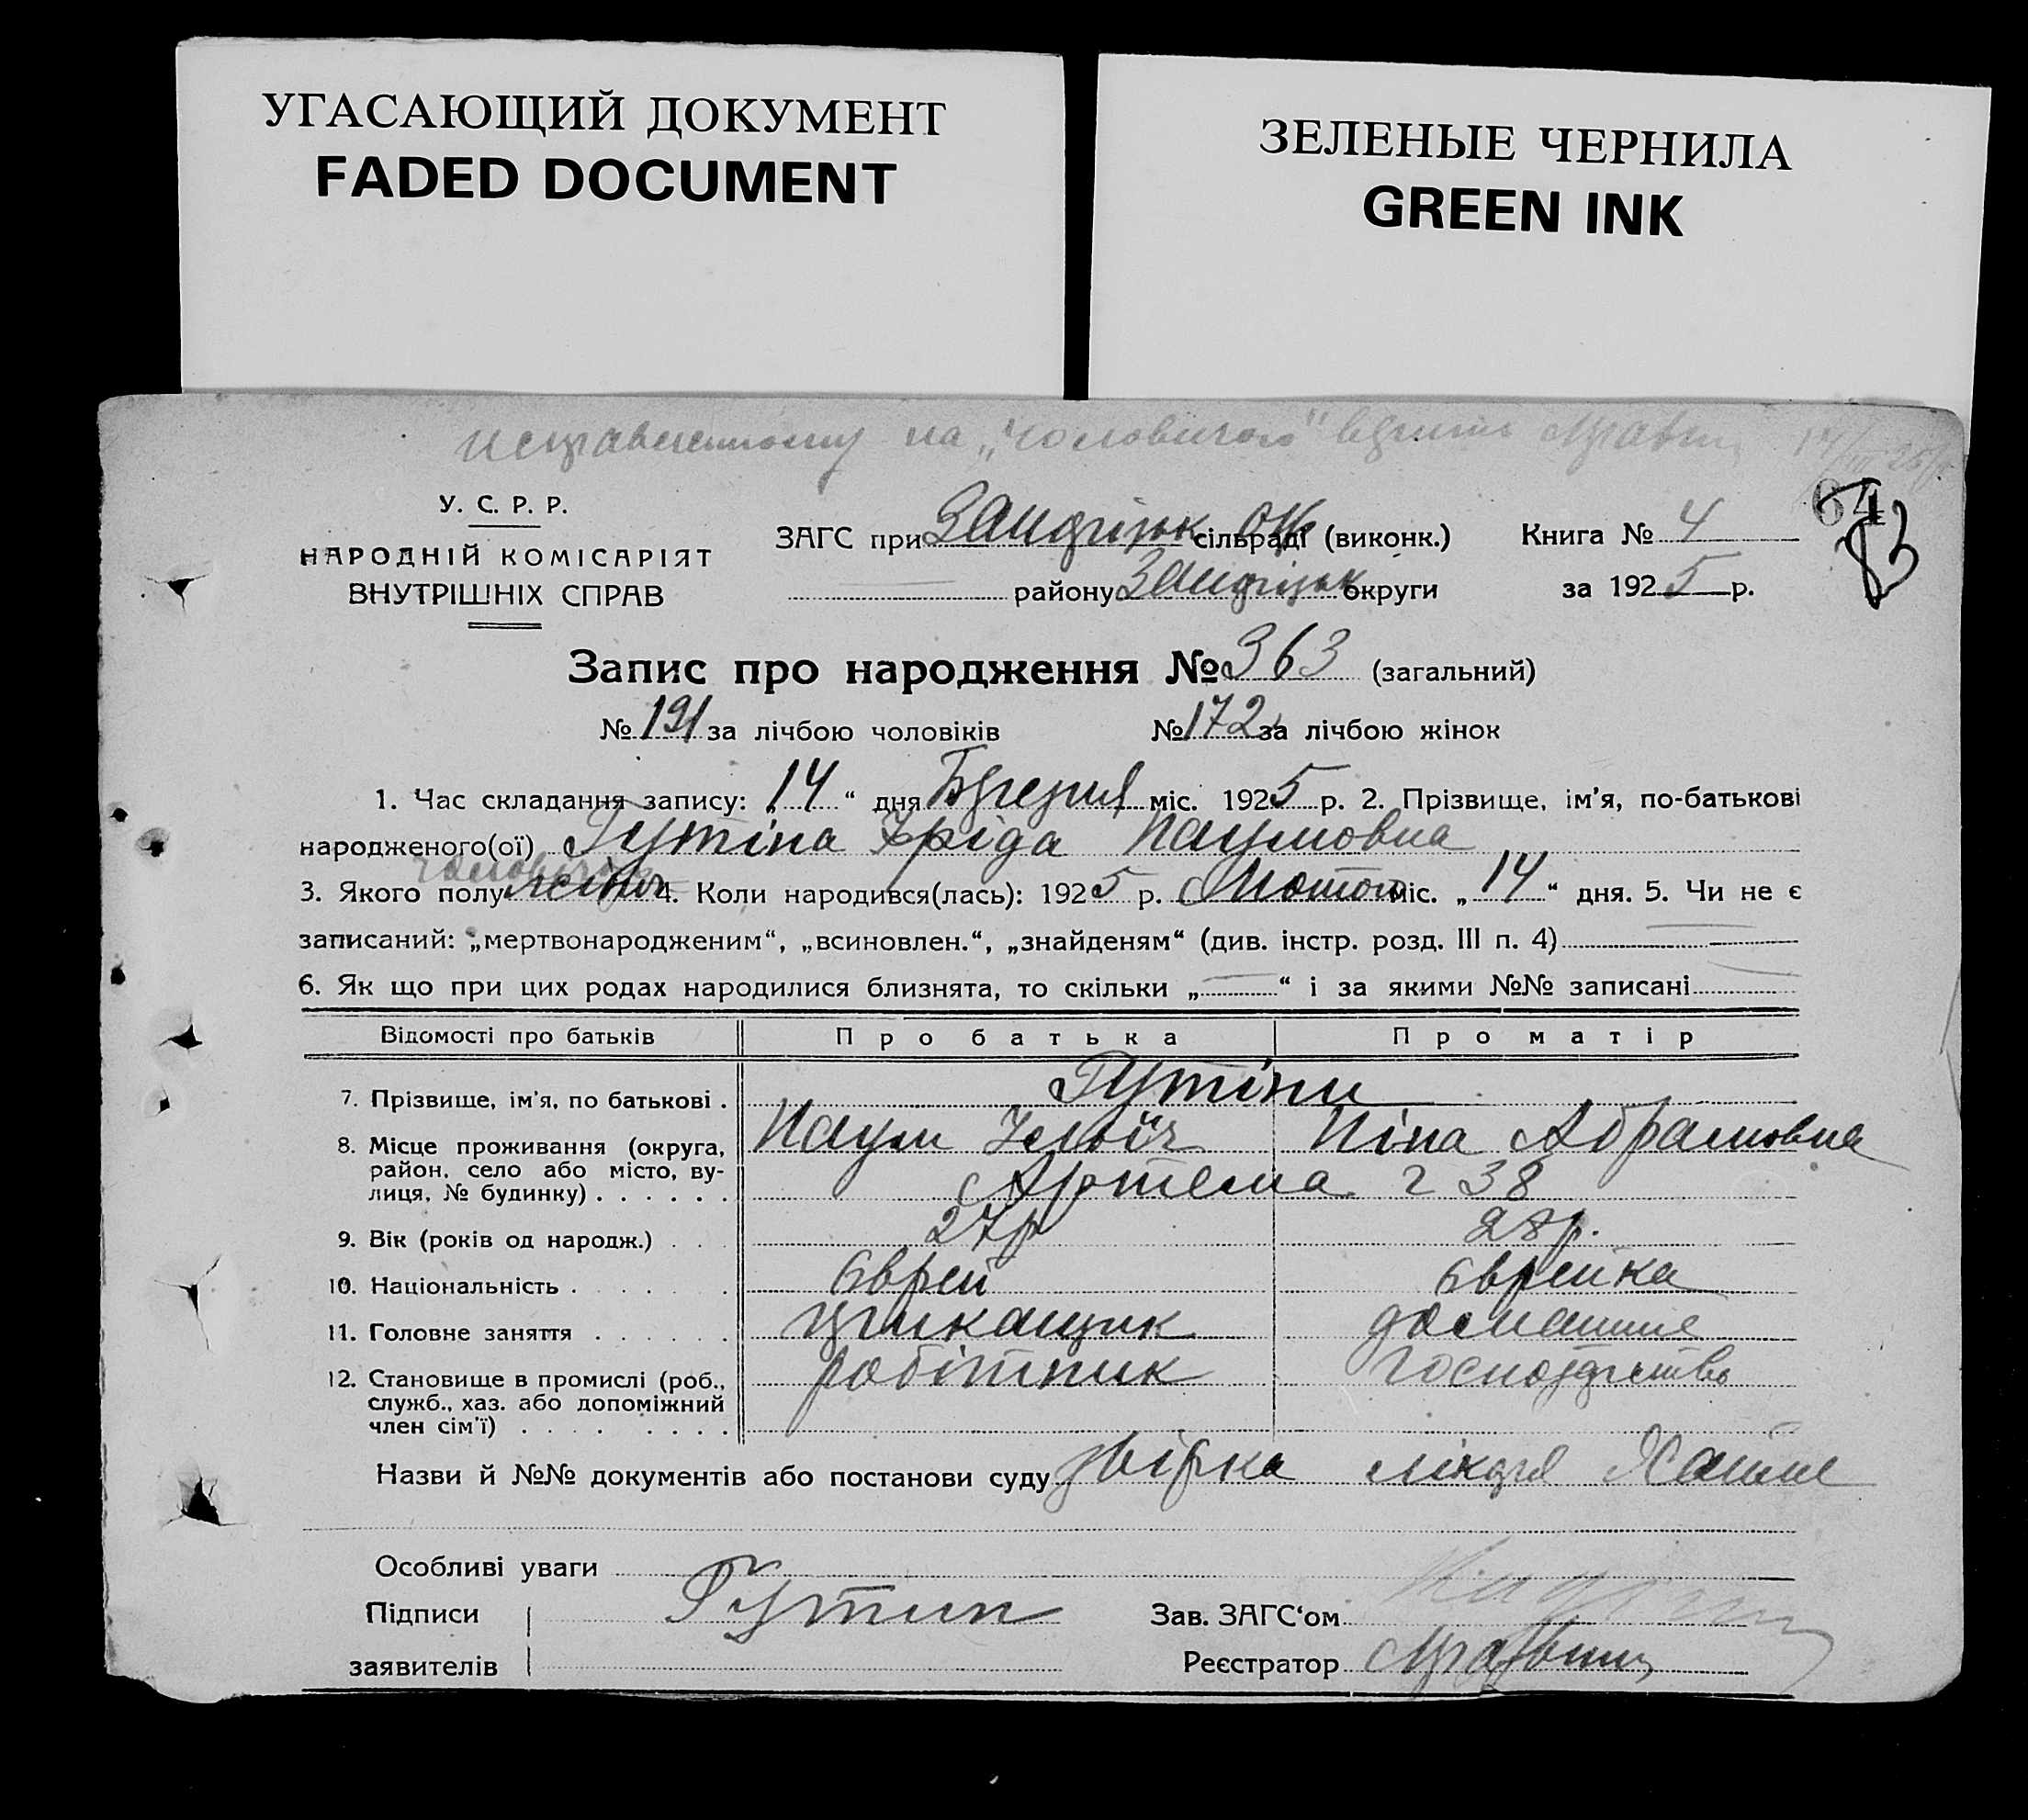 УГАСАЮЩИЙ ДОКУМЕНТ
FADED DOCUMENT
ЗЕЛЕНЫЕ ЧЕРНИЛА
GREEN INK
на „чоловичого"
64
83
У. С. Р. Р.
НАРОДНІЙ КОМІСАРІЯТ
ВНУТРІШНІХ СПРАВ
ЗАГС при сільраді (виконк.)
району округи
Книга № 4
за 1925 р.
Запис про народження № 363 (загальний)
№ 191 за лічбою чоловіків № 172 за лічбою жінок
1. Час складання запису: „14“ дня Березня міс. 1925 р. 2. Прізвище, ім'я, по-батькові
народженого(ої) Гутіна Фріда Наумовна
3. Якого полу жіноч 4. Коли народився(лась): 1925 р. Лютого міс. „14“ дня. 5. Чи не є
записаний: „мертвонародженим“, „всиновлен.“, „знайденям“ (див. інстр. розд. III п. 4)
6. Як що при цих родах народилися близнята, то скільки „ “ і за якими №№ записані
Відомості про батьків Про батька Про матір
7. Прізвище, ім'я, по батькові . Гутіни
Наум Ільїч Ніна Абрамовна
8. Місце проживання (округа, район, село або місто, вулиця, № будинку) . . . . . . Артема 38
9. Вік (років од народж.) . . . 27р 28р.
10. Національність . . . . . . Єврей Єврейка
11. Головне заняття . . . . . . домашне
12. Становище в промислі (роб., служб., хаз. або допоміжний член сім'ї) . . . . . . . . робітник господарство
Назви й №№ документів або постанови суду лікаря
Особливі уваги
Підписи Гутин Зав. ЗАГС'ом
заявителів Реєстратор